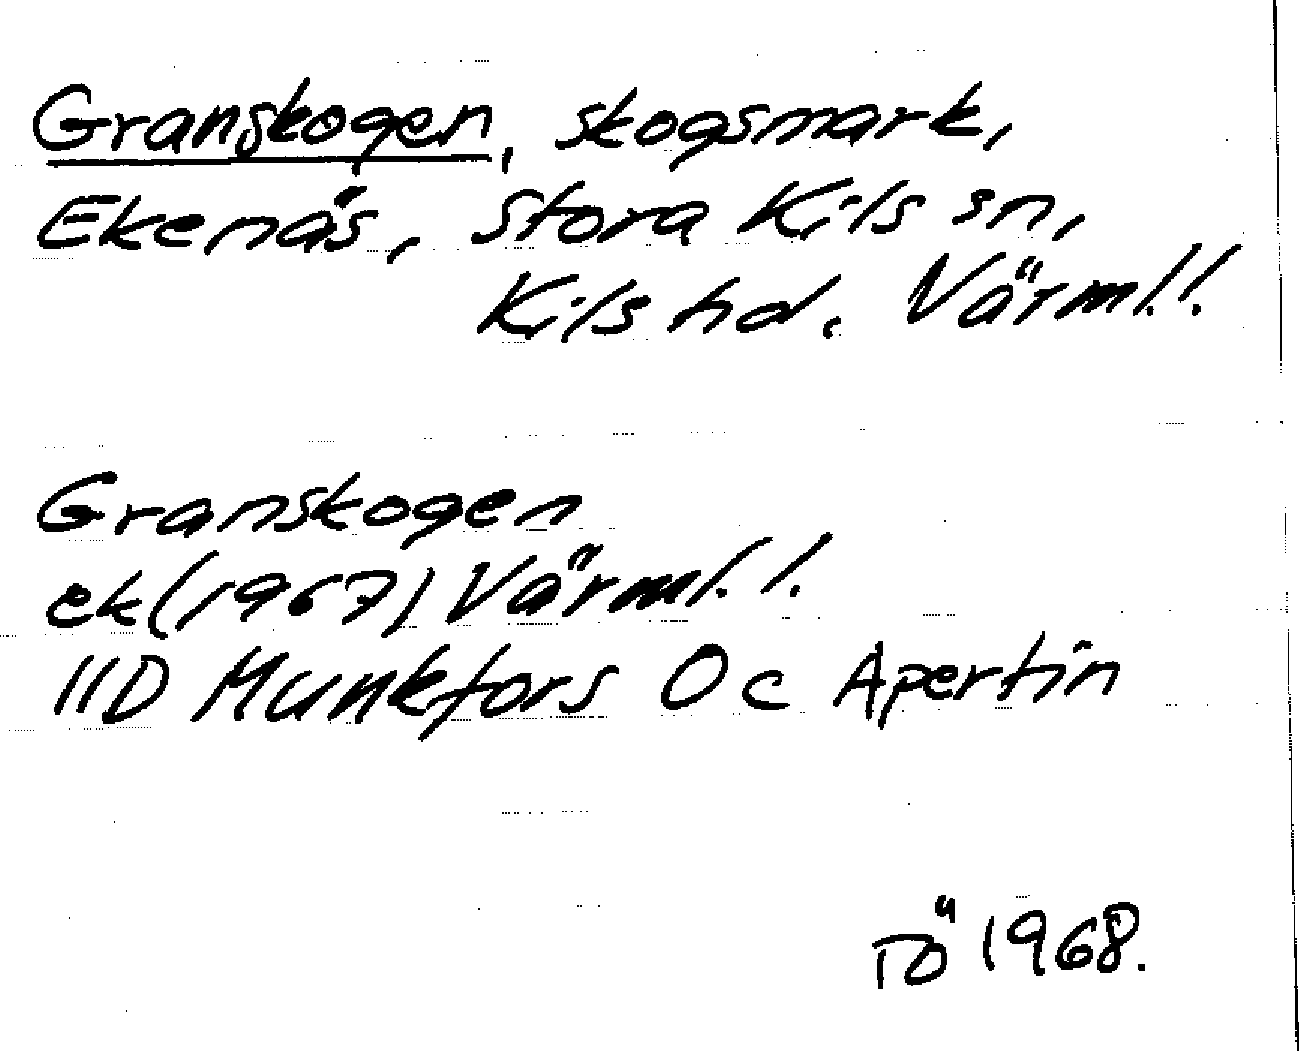 Granskogen, skogsmark,
Ekenäs, Stora Kils sn,
Kils hd. Värml. l.
Granskogen
ek (1967) Värml. l.
11D Munkfors Oc Apertin
TÖ 1968.